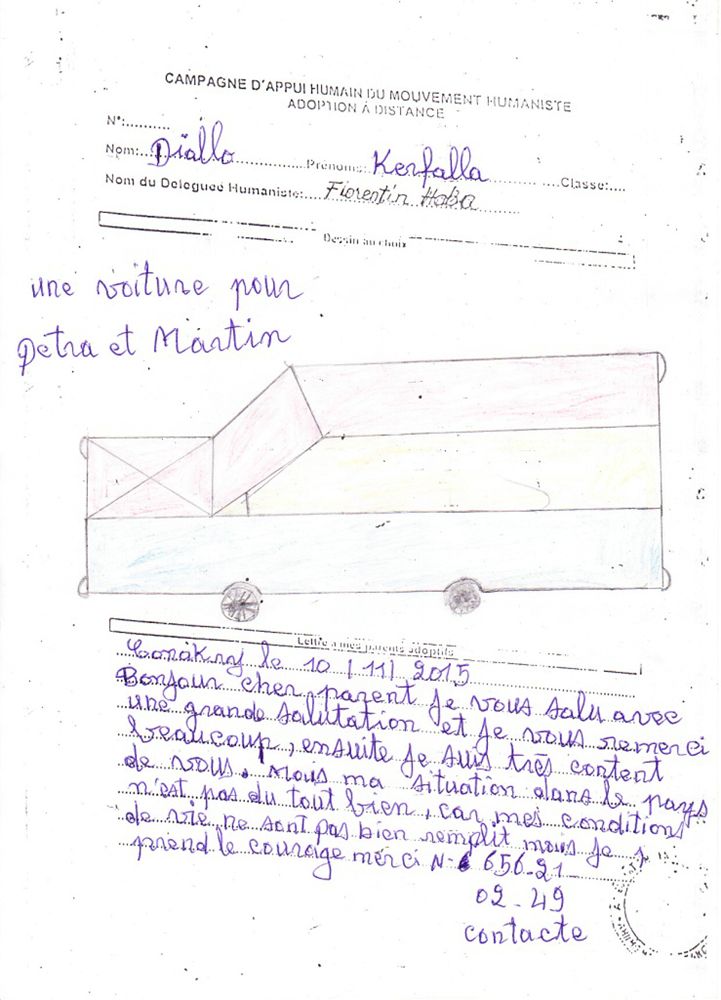 CAMPAGNE D'APPUI HUMAIN DU MOUVEMENT HUMANISTE
ADOPTION A DISTANCE
N°:..........
Nom:...Diallo..................Prénoms:Kerfalla..............Classe:....
Nom du Deleguee Humaniste:....Florentin HoBa..........
Dessin au choix
une voiture pour
Petra et Martin
Lettre a mes parents adoptifs
Conakry le 10 / 11/ 2015
Bonjour cher parent je vous salu avec
une grande salutation et je vous remerci
beaucoup, ensuite je suis très content
de vous. Mais ma situation dans le pays
n'est pas du tout bien, car mes conditions
de vie ne sont pas bien remplit mais je
prend le courage merci N- 656-21-
02-49
contacte